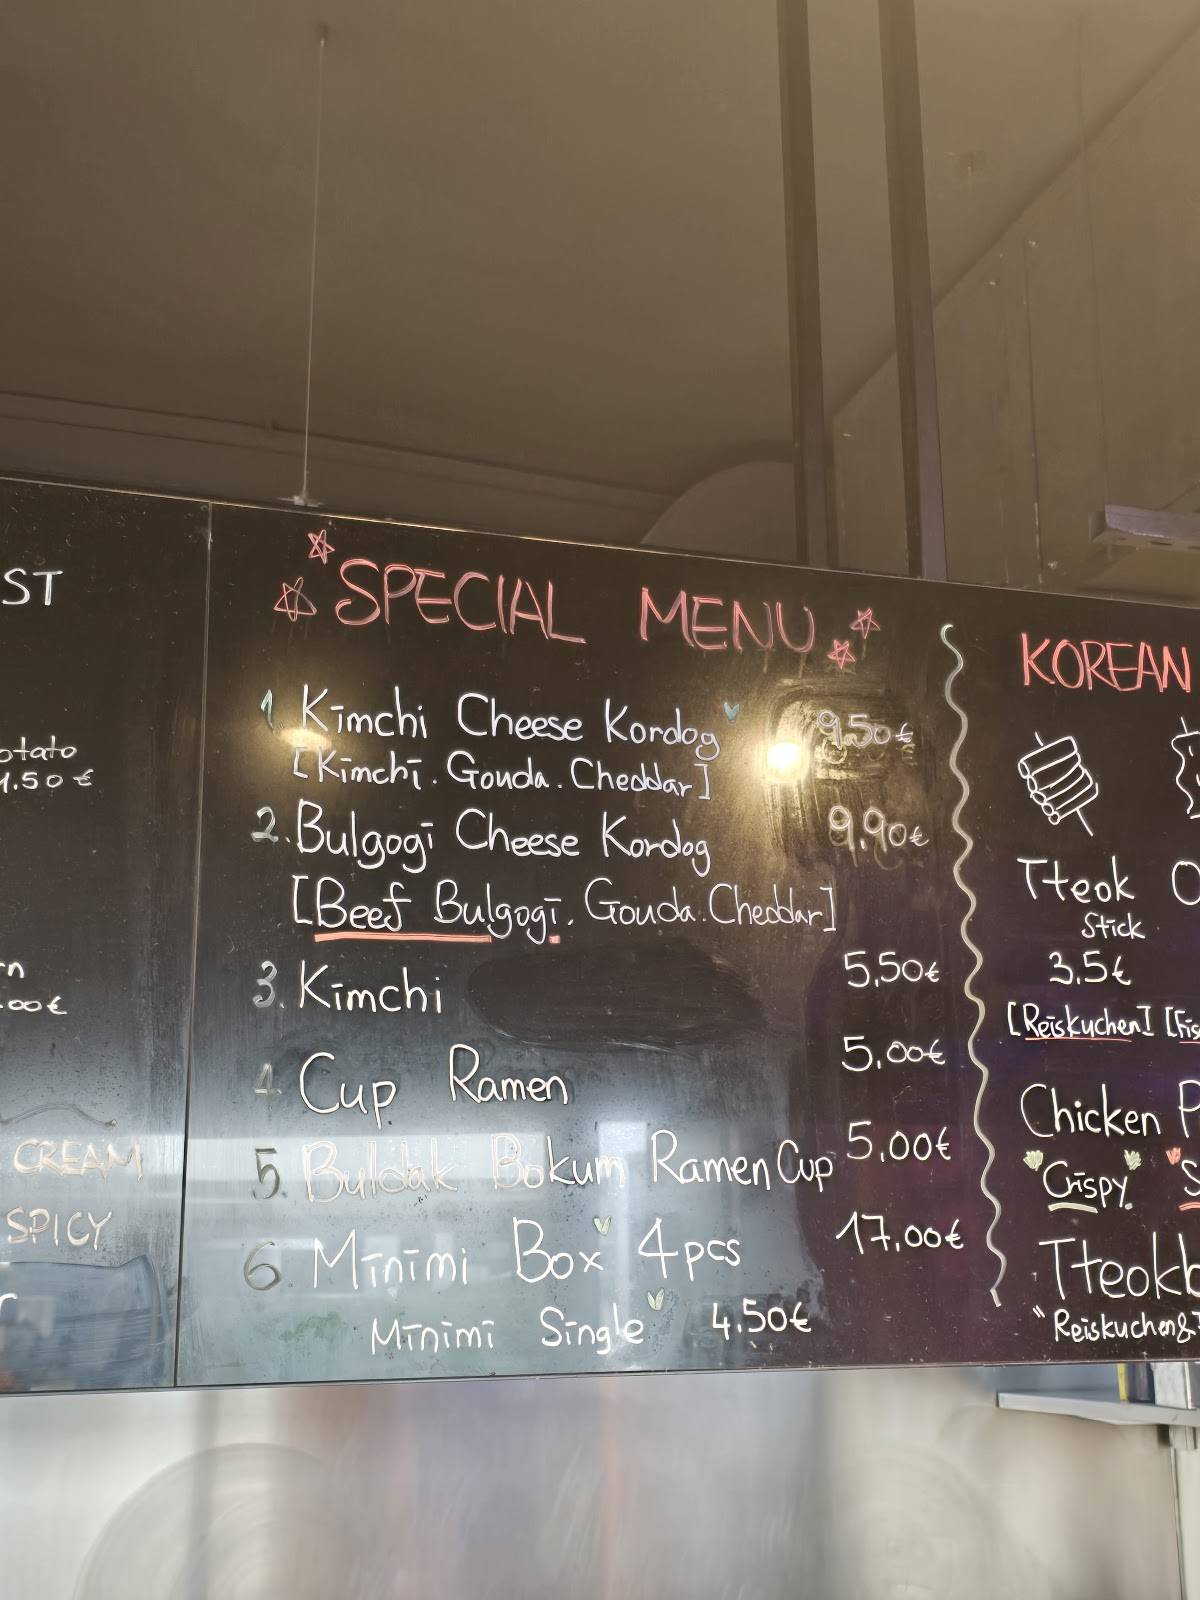 ST
otato
1.50€
rn
.00€
CREAM
SPICY
r
SPECIAL MENU
1. Kimchi Cheese Kordog 9.50€
[Kimchi. Gouda. Cheddar]
2. Bulgogi Cheese Kordog 9,90€
[Beef Bulgogi. Gouda. Cheddar]
3. Kimchi 5,50€
4. Cup Ramen 5,00€
5. Buldak Bokum Ramen Cup 5,00€
6. Minimi Box 4pcs 17,00€
Minimi Single 4.50€
KOREAN
Tteok O
Stick
3.5€
[Reiskuchen] [Fis
Chicken P
Crispy S
Tteokb
"Reiskuchen&